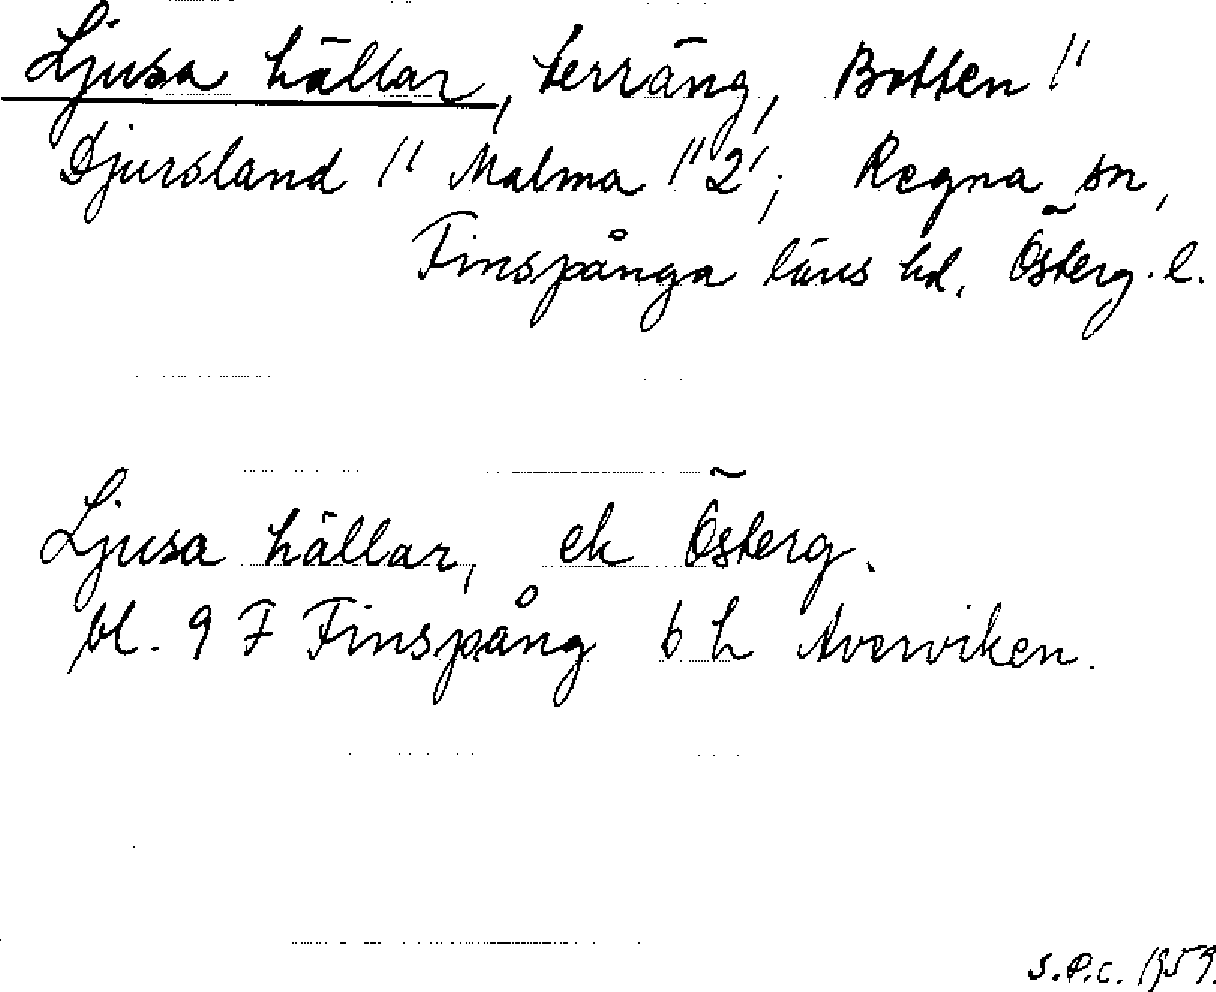 Ljusa hällar, terräng, Botten 1/1
Djursland 1/1 Malma 1/1 2; Regna sn,
Finspånga läns hd. Österg. l.
Ljusa hällar, ek Österg.
bl. 9 F Finspång 6 h Averviken.
S.P.C. 1959.